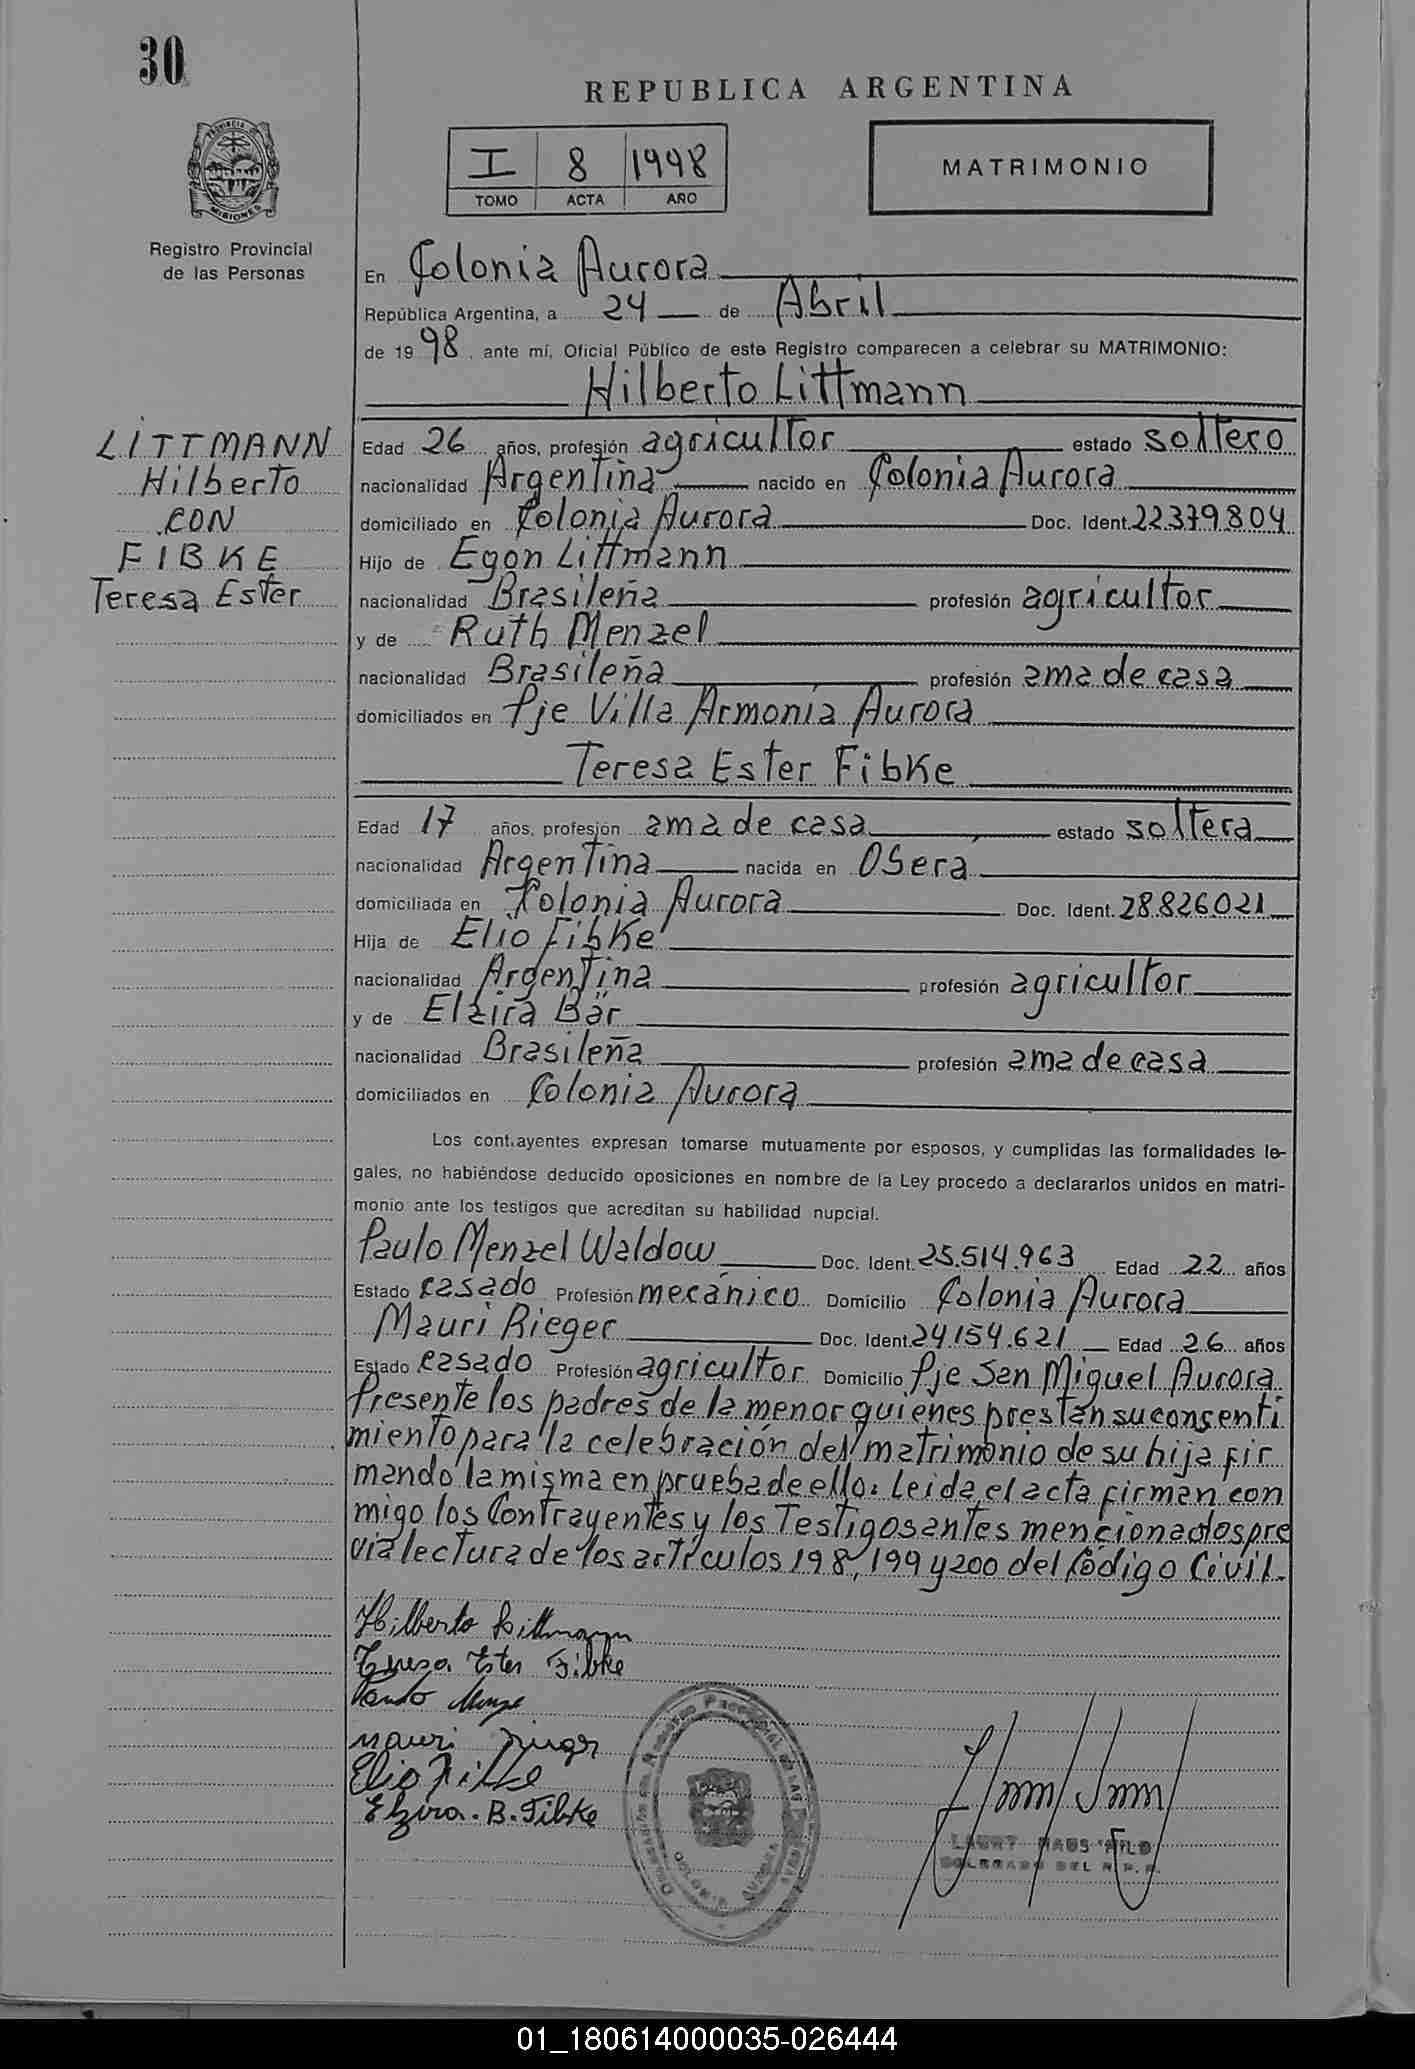 30
REPUBLICA ARGENTINA
I 8 1998
TOMO ACTA AÑO
MATRIMONIO
PROVINCIA DE MISIONES
Registro Provincial
de las Personas
En Colonia Aurora
República Argentina, a 24 de Abril
de 19 98, ante mí, Oficial Público de este Registro comparecen a celebrar su MATRIMONIO:
Hilberto Littmann
LITTMANN
Hilberto
CON
FIBKE
Teresa Ester
Edad 26 años, profesión agricultor estado soltero
nacionalidad Argentina nacido en Colonia Aurora
domiciliado en Colonia Aurora Doc. Ident. 22.379.804
Hijo de Egon Littmann
nacionalidad Brasileña profesión agricultor
y de Ruth Menzel
nacionalidad Brasileña profesión ama de casa
domiciliados en Pje Villa Armonía Aurora
Teresa Ester Fibke
Edad 17 años, profesión ama de casa estado soltera
nacionalidad Argentina nacida en Oberá
domiciliada en Colonia Aurora Doc. Ident. 28.826.021
Hija de Elio Fibke
nacionalidad Argentina profesión agricultor
y de Elzira Bär
nacionalidad Brasileña profesión ama de casa
domiciliados en Colonia Aurora
Los cont.ayentes expresan tomarse mutuamente por esposos, y cumplidas las formalidades le-
gales, no habiéndose deducido oposiciones en nombre de la Ley procedo a declararlos unidos en matri-
monio ante los testigos que acreditan su habilidad nupcial.
Paulo Menzel Waldow Doc. Ident. 25.514.963 Edad 22 años
Estado casado Profesión mecánico Domicilio Colonia Aurora
Mauri Rieger Doc. Ident. 24.154.621 Edad 26 años
Estado casado Profesión agricultor Domicilio Pje San Miguel Aurora
Presente los padres de la menor quienes prestan su consenti
miento para la celebración del matrimonio de su hija fir
mando la misma en prueba de ello: Leida el acta firman con
migo los Contrayentes y los Testigos antes mencionados pre
via lectura de los artículos 198, 199 y 200 del Código Civil.
Hilberto Littmann
Teresa Ester Fibke
Mauri Rieger
Elio Fibke
Elzira. B. Fibke
COLONIA AURORA
01_180614000035-026444